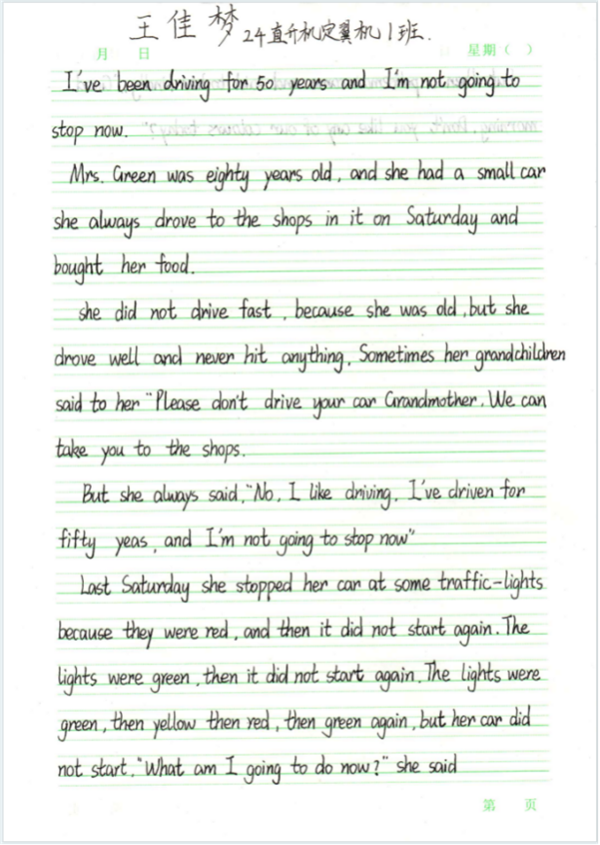 王佳梦 24直升机定翼机1班.
月 日 星期( )
I've been driving for 50 years and I'm not going to
stop now.
Mrs. Green was eighty years old, and she had a small car
she always drove to the shops in it on Saturday and
bought her food.
she did not drive fast, because she was old, but she
drove well and never hit anything. Sometimes her grandchildren
said to her "Please don't drive your car Grandmother. We can
take you to the shops.
But she always said, "No, I like driving. I've driven for
fifty yeas, and I'm not going to stop now"
Last Saturday she stopped her car at some traffic-lights
because they were red, and then it did not start again. The
lights were green, then it did not start again. The lights were
green, then yellow then red, then green again, but her car did
not start. "What am I going to do now?" she said
第 页